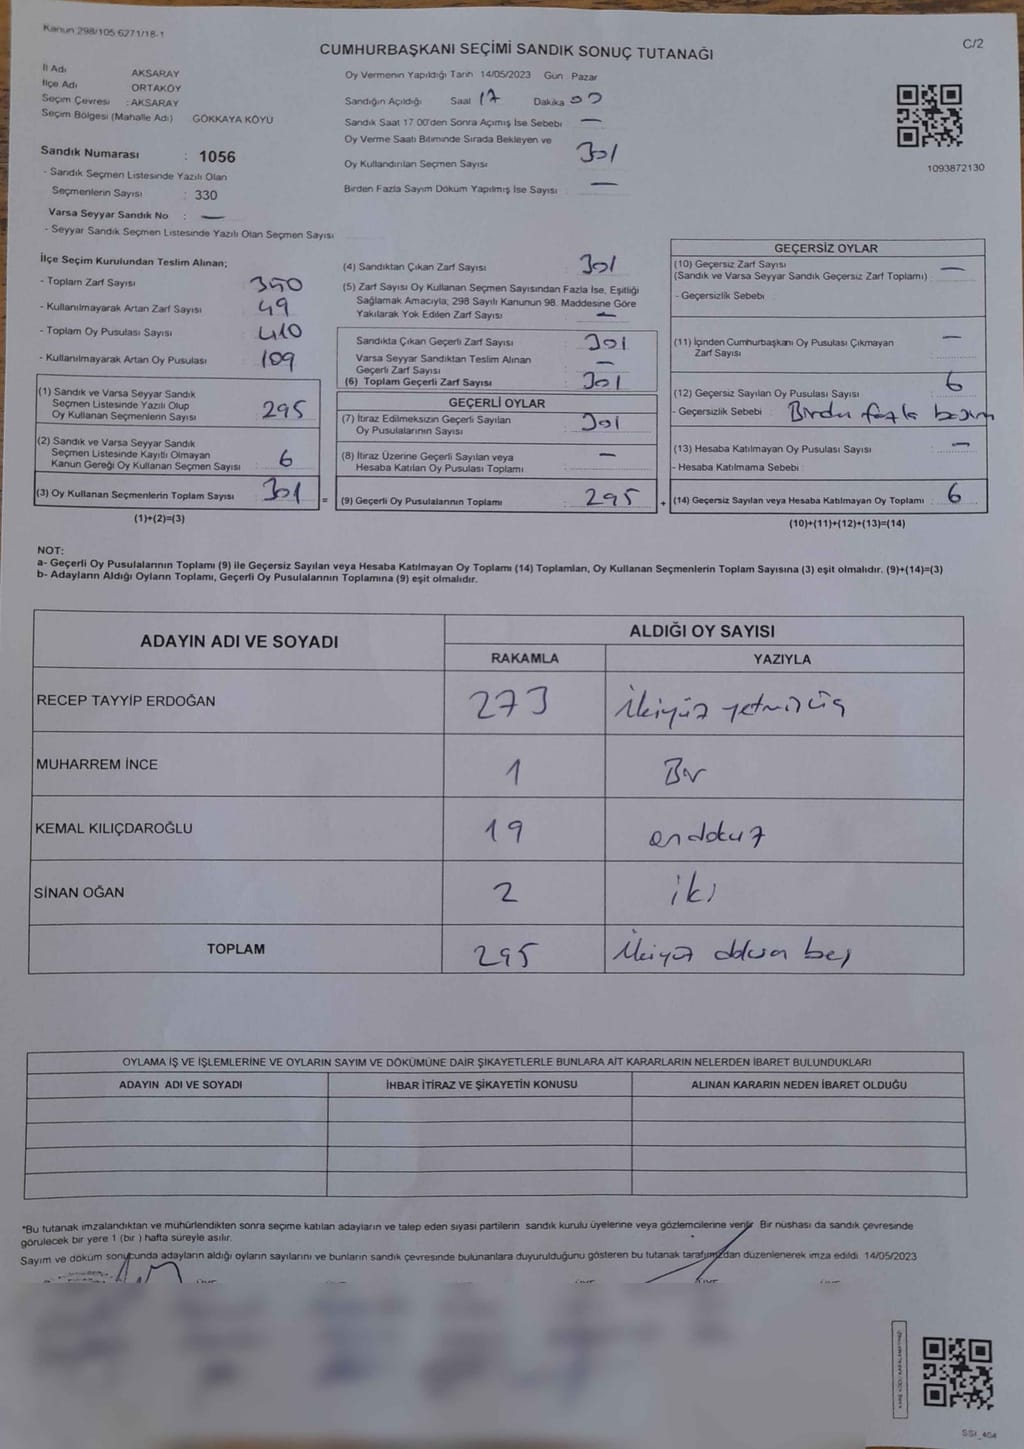 Kanun 298/105 6271/18-1
C/2
CUMHURBAŞKANI SEÇİMİ SANDIK SONUÇ TUTANAĞI
İl Adı AKSARAY
İlçe Adı ORTAKÖY
Seçim Çevresi : AKSARAY
Seçim Bölgesi (Mahalle Adı) GÖKKAYA KÖYÜ
Sandık Numarası : 1056
- Sandık Seçmen Listesinde Yazılı Olan
Seçmenlerin Sayısı : 330
Varsa Seyyar Sandık No : —
- Seyyar Sandık Seçmen Listesinde Yazılı Olan Seçmen Sayısı
Oy Vermenin Yapıldığı Tarih 14/05/2023 Gün : Pazar
Sandığın Açıldığı Saat 17 Dakika 00
Sandık Saat 17:00'den Sonra Açımış İse Sebebi : —
Oy Verme Saati Bitiminde Sırada Bekleyen ve
Oy Kullandırılan Seçmen Sayısı 301
Birden Fazla Sayım Döküm Yapılmış İse Sayısı : —
1093872130
İlçe Seçim Kurulundan Teslim Alınan;
- Toplam Zarf Sayısı 350
- Kullanılmayarak Artan Zarf Sayısı 49
- Toplam Oy Pusulası Sayısı 410
- Kullanılmayarak Artan Oy Pusulası 109
(1) Sandık ve Varsa Seyyar Sandık
Seçmen Listesinde Yazılı Olup
Oy Kullanan Seçmenlerin Sayısı 295
(2) Sandık ve Varsa Seyyar Sandık
Seçmen Listesinde Kayıtlı Olmayan
Kanun Gereği Oy Kullanan Seçmen Sayısı 6
(3) Oy Kullanan Seçmenlerin Toplam Sayısı 301 =
(1)+(2)=(3)
(4) Sandıktan Çıkan Zarf Sayısı 301
(5) Zarf Sayısı Oy Kullanan Seçmen Sayısından Fazla İse, Eşitliği
Sağlamak Amacıyla, 298 Sayılı Kanunun 98. Maddesine Göre
Yakılarak Yok Edilen Zarf Sayısı : —
Sandıkta Çıkan Geçerli Zarf Sayısı 301
Varsa Seyyar Sandıktan Teslim Alınan
Geçerli Zarf Sayısı —
(6) Toplam Geçerli Zarf Sayısı 301
GEÇERLİ OYLAR
(7) İtiraz Edilmeksizin Geçerli Sayılan
Oy Pusulalarının Sayısı 301
(8) İtiraz Üzerine Geçerli Sayılan veya
Hesaba Katılan Oy Pusulası Toplamı —
(9) Geçerli Oy Pusulalarının Toplamı 295 +
GEÇERSİZ OYLAR
(10) Geçersiz Zarf Sayısı
(Sandık ve Varsa Seyyar Sandık Geçersiz Zarf Toplamı) : —
- Geçersizlik Sebebi :
(11) İçinden Cumhurbaşkanı Oy Pusulası Çıkmayan
Zarf Sayısı —
(12) Geçersiz Sayılan Oy Pusulası Sayısı 6
- Geçersizlik Sebebi : Birden fazla basım
(13) Hesaba Katılmayan Oy Pusulası Sayısı —
- Hesaba Katılmama Sebebi :
(14) Geçersiz Sayılan veya Hesaba Katılmayan Oy Toplamı : 6
(10)+(11)+(12)+(13)=(14)
NOT:
a- Geçerli Oy Pusulalarının Toplamı (9) ile Geçersiz Sayılan veya Hesaba Katılmayan Oy Toplamı (14) Toplamları, Oy Kullanan Seçmenlerin Toplam Sayısına (3) eşit olmalıdır. (9)+(14)=(3)
b- Adayların Aldığı Oyların Toplamı, Geçerli Oy Pusulalarının Toplamına (9) eşit olmalıdır.
ADAYIN ADI VE SOYADI
ALDIĞI OY SAYISI
RAKAMLA YAZIYLA
RECEP TAYYİP ERDOĞAN 273 ikiyüz yetmişüç
MUHARREM İNCE 1 Bir
KEMAL KILIÇDAROĞLU 19 ondokuz
SİNAN OĞAN 2 iki
TOPLAM 295 ikiyüz doksan beş
OYLAMA İŞ VE İŞLEMLERİNE VE OYLARIN SAYIM VE DÖKÜMÜNE DAİR ŞİKAYETLERLE BUNLARA AİT KARARLARIN NELERDEN İBARET BULUNDUKLARI
ADAYIN ADI VE SOYADI İHBAR İTİRAZ VE ŞİKAYETİN KONUSU ALINAN KARARIN NEDEN İBARET OLDUĞU
"Bu tutanak imzalandıktan ve mühürlendikten sonra seçime katılan adayların ve talep eden siyasi partilerin sandık kurulu üyelerine veya gözlemcilerine verilir. Bir nüshası da sandık çevresinde
görülecek bir yere 1 (bir ) hafta süreyle asılır.
Sayım ve döküm sonucunda adayların aldığı oyların sayılarını ve bunların sandık çevresinde bulunanlara duyurulduğunu gösteren bu tutanak tarafımızdan düzenlenerek imza edildi 14/05/2023